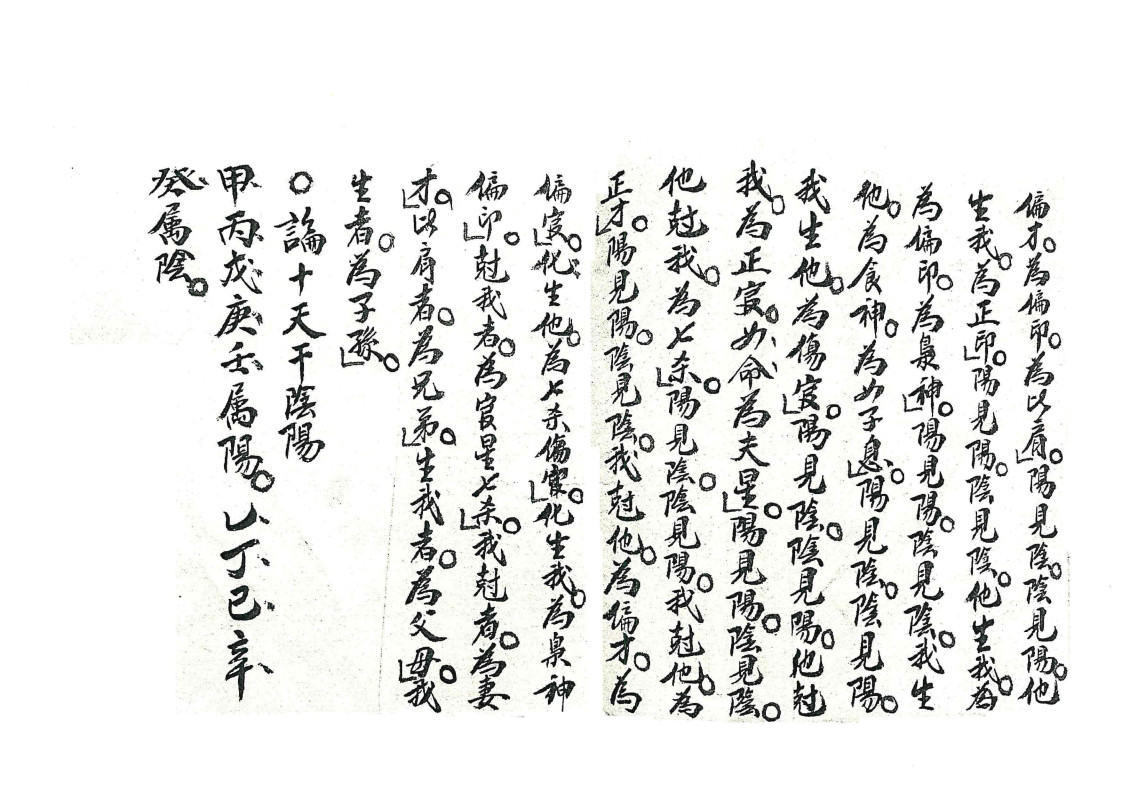 偏才。為偏印。為比肩」。陽見陰。陰見陽。他
生我。為正印」。陽見陽。陰見陰。他生我。為
為偏印。為梟神」。陽見陽。陰見陰。我生
他。為食神。為女子息」。陽見陰。陰見陽。
我生他。為傷官」。陽見陰。陰見陽。他尅
我。為正官。女命為夫星」。陽見陽。陰見陰。
他尅我。為七杀」。陽見陰。陰見陽。我尅他。為
正才」。陽見陽。陰見陰。我尅他。為偏才。為
偏官」。化生他。為七杀傷官」。化生我。為梟神
偏印」。尅我者。為官星七杀」。我尅者。為妻
才」。比肩者。為兄弟」。生我者。為父母」。我
生者。為子孫」。
○論十天干陰陽
甲、丙、戊、庚、壬、属陽。乙、丁、己、辛、
癸、属陰。